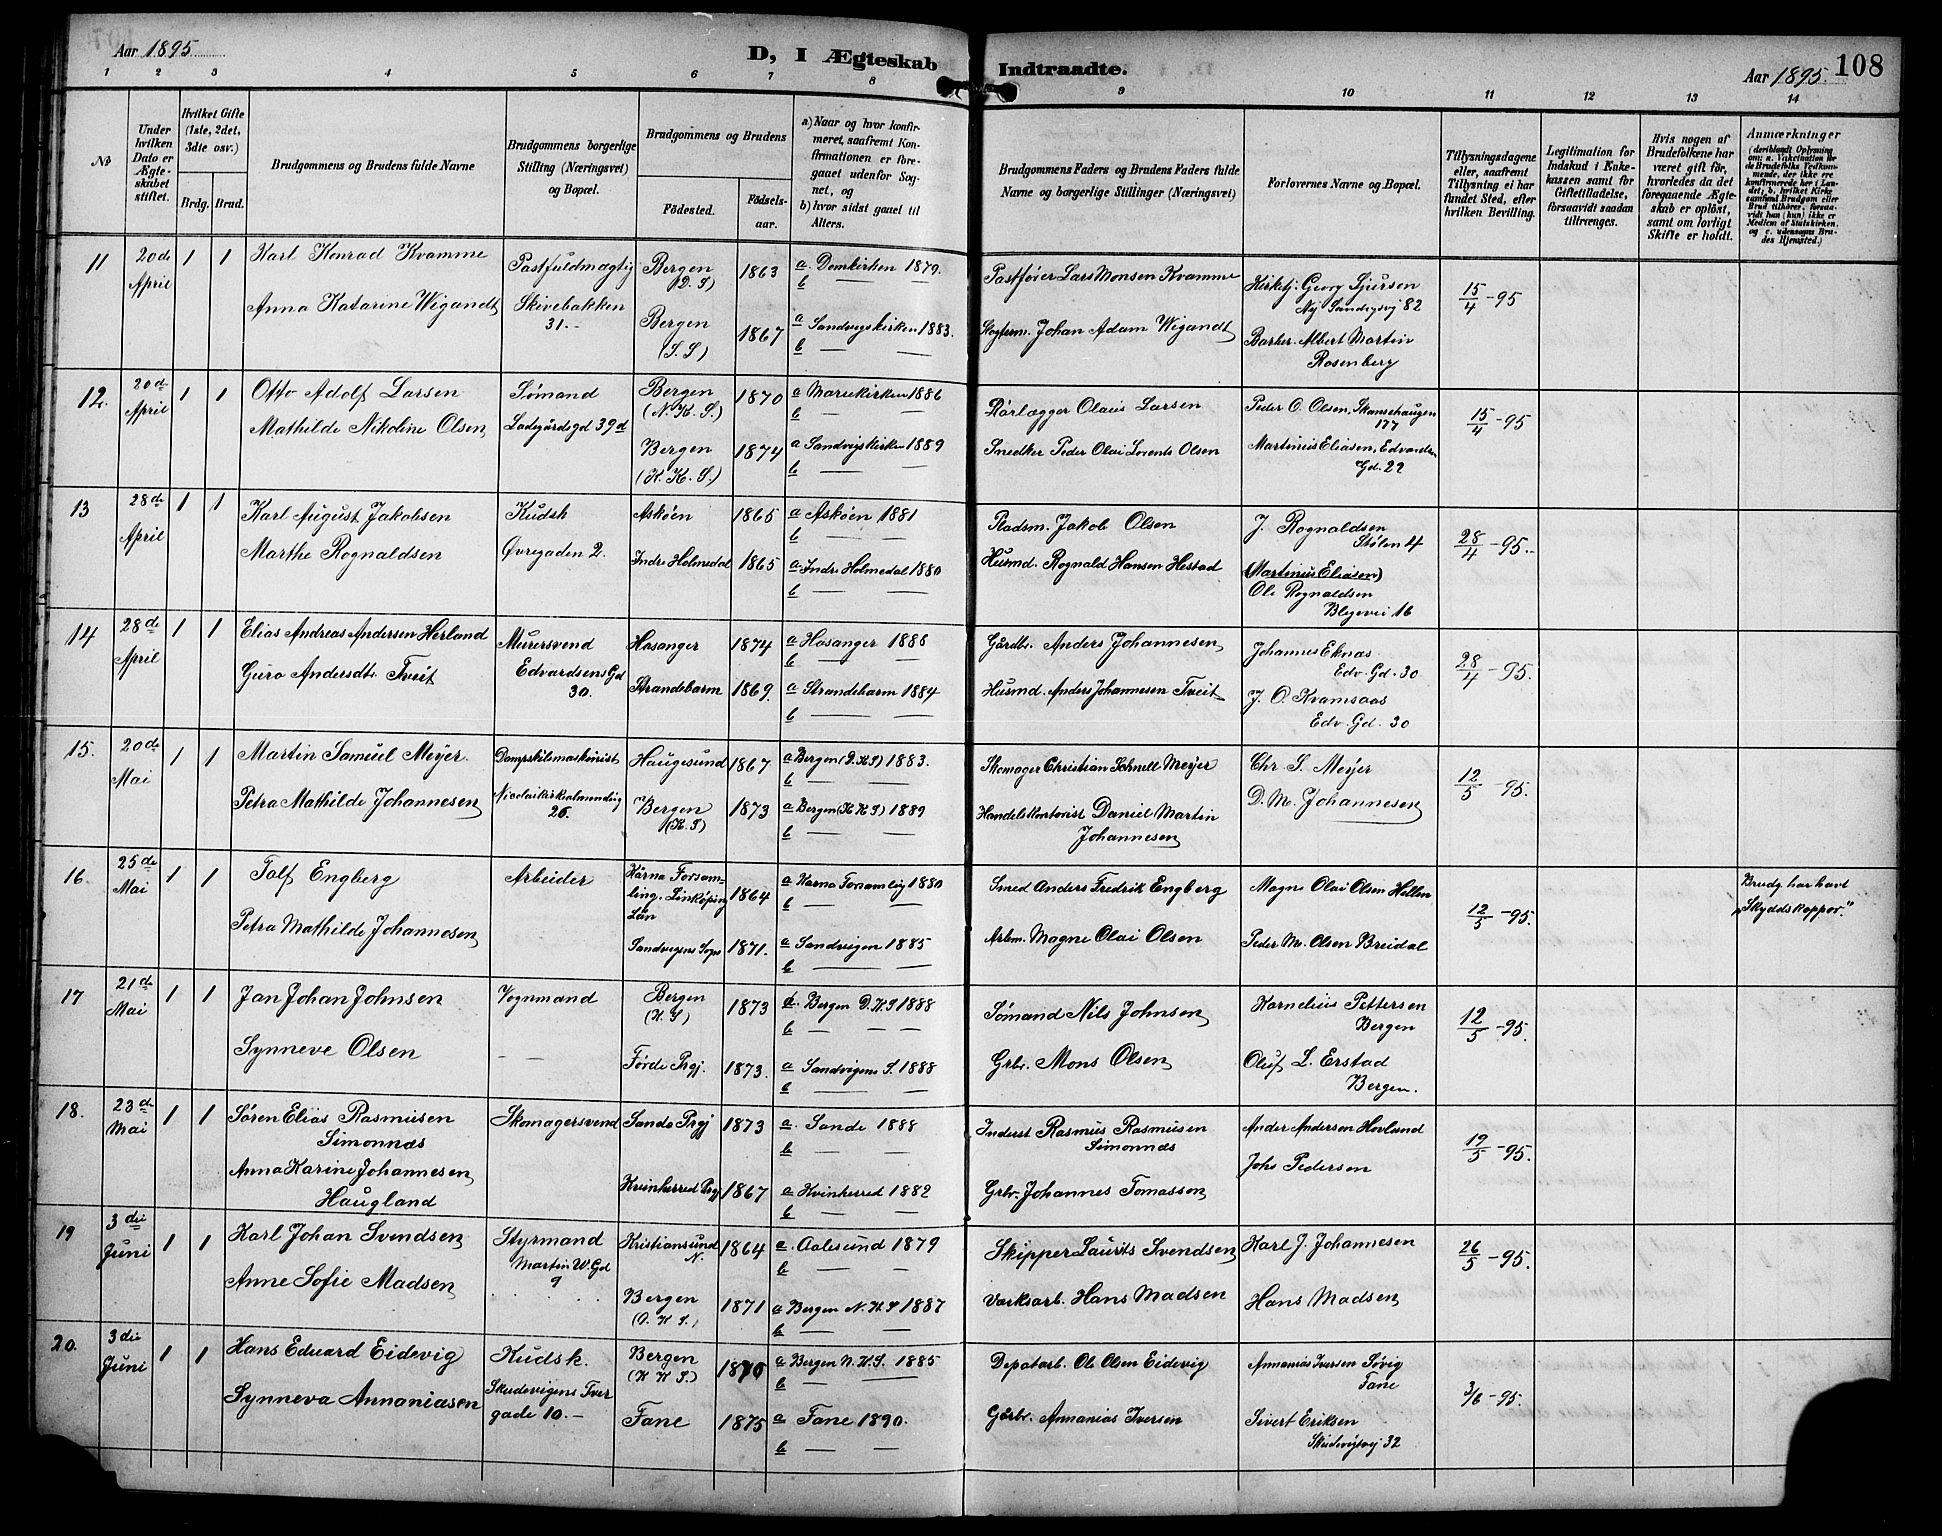 Aar 1895.
D, I Ægteskab Indtraadte.
Aar 1895. 108
1 2 3 4 5 6 7 8 9 10 11 12 13 14
No
Under hvilken Dato er Ægteskabet stiftet.
Hvilket Gifte (1ste, 2det, 3die osv.)
Brdg. Brud.
Brudgommens og Brudens fulde Navne
Brudgommens borgerlige Stilling (Næringsvei) og Bopæl.
Brudgommens og Brudens
Fødested. Fødselsaar.
a) Naar og hvor konfirmeret, saafremt Konfirmationen er foregaaet udenfor Sognet, og
b) hvor sidst gaaet til Alters.
Brudgommens Faders og Brudens Faders fulde Navne og borgerlige Stillinger (Næringsvei)
Forlovernes Navne og Bopæl.
Tillysningsdagene eller, saafremt Tillysning ei har fundet Sted, efter hvilken Bevilling.
Legitimation for Indskud i Enkekassen samt for Giftetilladelse, forsaavidt saadan tiltrænges.
Hvis nogen af Brudefolkene har været gift før, hvorledes da det foregaaende Ægteskab er opløst, samt om lovligt Skifte er holdt.
Anmærkninger
11 20de April 1 1
Karl Konrad Kvamme
Anna Katarine Wigandt
Postfuldmægtig
Skivebakken
31.-
Bergen (D. S) 1863 a Domkirken 1879.
b
Bergen (S. S) 1867 a Sandvigskirken 1883.
b
Postfører Lars Monsen Kvamme
Johan Adam Wigandt
Kirketj. Georg Sjursen
Ny Sandvigsvj 82
Barber. Albert Martin
Rosenberg
15/4-95
12. 20de April 1 1
Otto Adolf Larsen
Mathilde Nikoline Olsen
Sømand
Ladegårdsgd 39d
Bergen (N. K. S.) 1870 a Mariekirken 1886
b
Bergen (K. K. S.) 1874 a Sandvigskirken 1889
b
Rørlægger Olaus Larsen
Snedker Peder Olai Lorents Olsen
Peder O. Olsen, Skansehaugen
177
Martinius Eliasen, Edvardsen
Gd. 22
15/4-95
13 28de April 1 1
Karl August Jakobsen
Marthe Rognaldsen
Kudsk
Øvregaden 2.
Askøen 1865 a Askøen 1881
b
Indre Holmedal 1865 a Indre Holmedal 1880
b
Pladsm. Jakob Olsen
Husmd. Rognald Hansen Hestad
J. Rognaldsen
Stølen 4
(Martinius Eliasen)
Ole Rognaldsen
Blegevei 16
28/4-95.
14 28de April 1 1
Elias Andreas Andersen Herland
Guro Andersdtr Tveit
Murersvend
Edvardsens Gd
30.
Hosanger 1874 a Hosanger 1888
b
Strandebarm 1869. a Strandebarm 1884
b
Gårdbr. Anders Johannesen
Husmd. Anders Johannesen Tveit
Johannes Eknæs
Edv. Gd. 30
J. O. Kvamsaas
Edv. Gd. 30
28/4-95.
15. 20de Mai 1 1
Martin Samuel Meyer.
Petra Mathilde Johannesen
Dampskibsmaskinist
Nicolaikirkealmending
26.
Haugesund 1867 a Bergen (D. K S) 1883.
b
Bergen (K. S) 1873 a Bergen (K K S) 1889
b
Skomager Christian Schnell Meyer
Handelskontorist Daniel Martin
Johannesen
Chr S. Meyer
D. M. Johannesen
12/5-95.
16. 25de Mai 1 1
Tolf Engberg
Petra Mathilde Johannesen
Arbeider
Kårna Forsamling, Linköping Län 1864 a Karna Forsamlig 1880
b
Sandvigens Sogn 1871. a Sandvigen 1885
b
Smed Anders Fredrik Engberg
Arbm. Magne Olai Olsen
Magne Olai Olsen Hellen
Peder M. Olsen Breidal
12/5-95.
Brudg. har havt
"Skyddskoppor."
17 21de Mai 1 1
Jan Johan Johnsen
Synneve Olsen
Vognmand
Bergen (K S) 1873 a. Bergen D. K S 1888
b
Førde Prgj. 1873. a Sandvigens S. 1888
b
Sømand Nils Johnsen
Grbr. Mons Olsen
Kornelius Pettersen
Bergen
Oluf L. Erstad
Bergen.
12/5-95.
18. 23de Mai 1 1
Søren Elias Rasmusen
Simonnæs
Anna Karine Johannesen
Haugland
Skomagersvend
Sande Prgj 1873 a. Sande 1888
b
Kvinherred Prgj 1867 a Kvinherred 1882
b
Inderst Rasmus Rasmusen
Simonnæs
Grbr. Johannes Tomassen
Ander Anderson Hovland
Johs Pedersen
12/5-95.
19 3die Juni 1 1
Karl Johan Svendsen
Anne Sofie Madsen
Styrmand
Martin W. Gd
9
Kristiansund N. 1864 a. Aalesund 1879
b
Bergen (D. K S.) 1871 a Bergen N. K S 1887
b
Skipper Laurits Svendsen
Værksarb. Hans Madsen
Karl J. Johannesen
Hans Madsen
26/5-95.
20. 3die Juni 1 1
Hans Eduard Eidevig
Synneva Annaniasen
Kudsk.
Skudevigens Tver
gade 10.-
Bergen (K K S.) 1870 a Bergen N. K S. 1885
b
Fane 1875 a Fane 1890.
b
Depotarb. Ole Olsen Eidevig
Gårbr. Annanias Iversen
Annanias Iversen Søvig
Fane
Sivert Eriksen
Skudevigsvej 32
3/6-95.